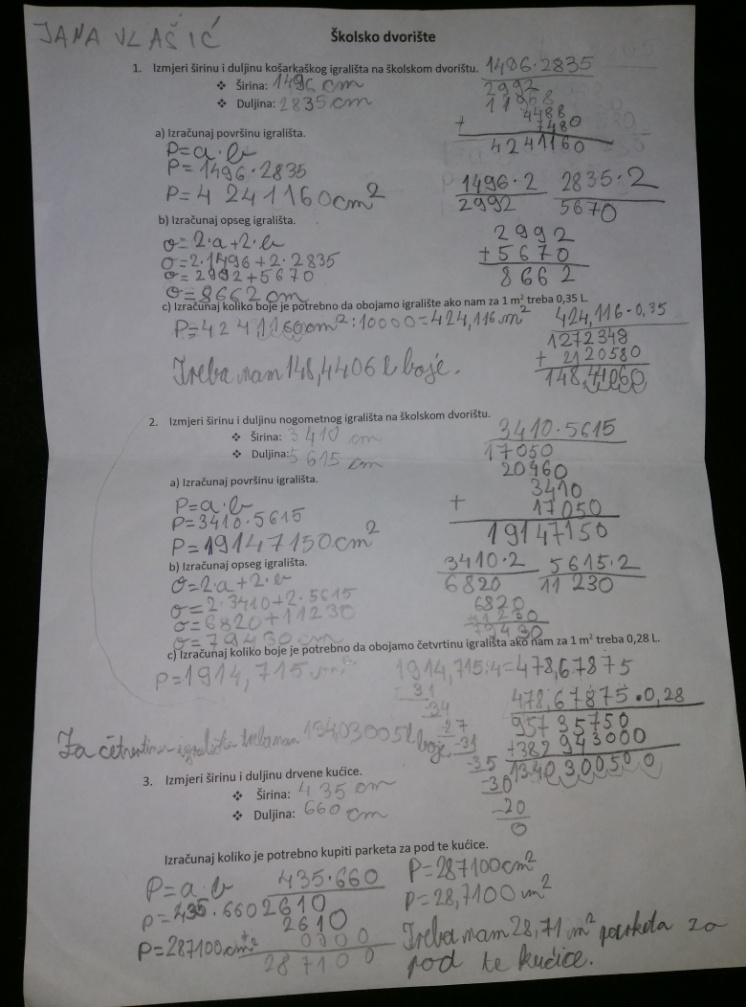 JANA VLAŠIĆ
Školsko dvorište
1. Izmjeri širinu i duljinu košarkaškog igrališta na školskom dvorištu.
❖ Širina: 1496 cm
❖ Duljina: 2835 cm
1496·2835
2992
11968
4488
+ 7480
4241160
a) Izračunaj površinu igrališta.
P=a·b
P=1496·2835
P=4 241160cm²
1496·2
2992
2835·2
5670
b) Izračunaj opseg igrališta.
o=2·a+2·b
o=2·1496+2·2835
o=2992+5670
o=8662 cm
2992
+5670
8662
c) Izračunaj koliko boje je potrebno da obojamo igralište ako nam za 1 m² treba 0,35 L.
P=4241160cm²:10000=424,116m²
Treba nam 148,4406 l boje.
424,116·0,35
1272348
+ 2120580
148,44060
2. Izmjeri širinu i duljinu nogometnog igrališta na školskom dvorištu.
❖ Širina: 3410 cm
❖ Duljina: 5615 cm
3410·5615
17050
20460
3410
+ 17050
19147150
a) Izračunaj površinu igrališta.
P=a·b
P=3410·5615
P=19147150cm²
3410·2
6820
5615·2
11230
b) Izračunaj opseg igrališta.
o=2·a+2·b
o=2·3410+2·5615
o=6820+11230
o=79430 cm
6820
11230
79430
c) Izračunaj koliko boje je potrebno da obojamo četvrtinu igrališta ako nam za 1 m² treba 0,28 L.
P=1914,715m²
1914,715:4=478,67875
-31
-34
-27
-31
-35
-30
-20
0
478,67875·0,28
95735750
+382943000
1340300500
Za četvrtinu igrališta treba nam 13403005l boje
3. Izmjeri širinu i duljinu drvene kućice.
❖ Širina: 435 cm
❖ Duljina: 660 cm
Izračunaj koliko je potrebno kupiti parketa za pod te kućice.
P=a·b
P=435·660
P=287100cm²
435·660
2610
2610
+ 0000
287100
P=287100cm²
P=28,7100 m²
Treba nam 28,71 m² parketa za
pod te kućice.